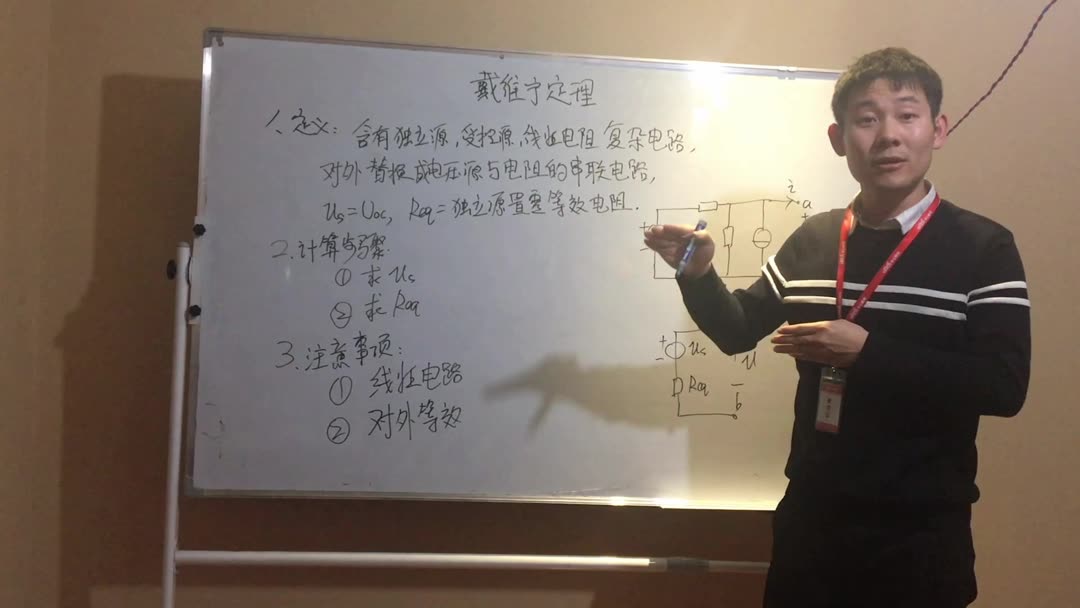 戴维宁定理
1、定义：含有独立源,受控源,线性电阻复杂电路,
对外替换成电压源与电阻的串联电路,
Us=Uoc, Req=独立源置零等效电阻.
2、计算步骤:
① 求 Us
② 求 Req
3、注意事项:
① 线性电路
② 对外等效
i
a
+
+
-
+
-
Us
U
Req
-
b